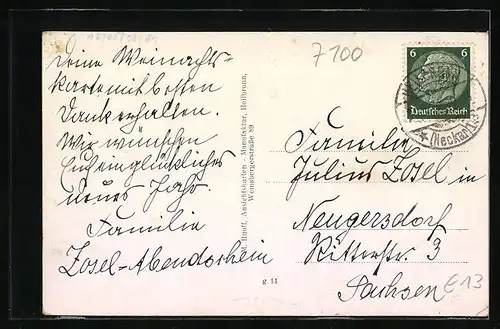 Deine Weinachts-
karte mit besten
Dank erhalten.
Wir wünschen
Euch ein glückliches
neues Jahr.
Familie
Zosel-Abendschein
M. Ruoff, Ansichtskarten-Manufaktur, Heilbronn,
Weinsbergerstraße 89
g 11
7100
6 6
Deutsches Reich
(Neckar)
Familie
Julius Zosel in
Neugersdorf
Ritterstr. 3
Sachsen
E13